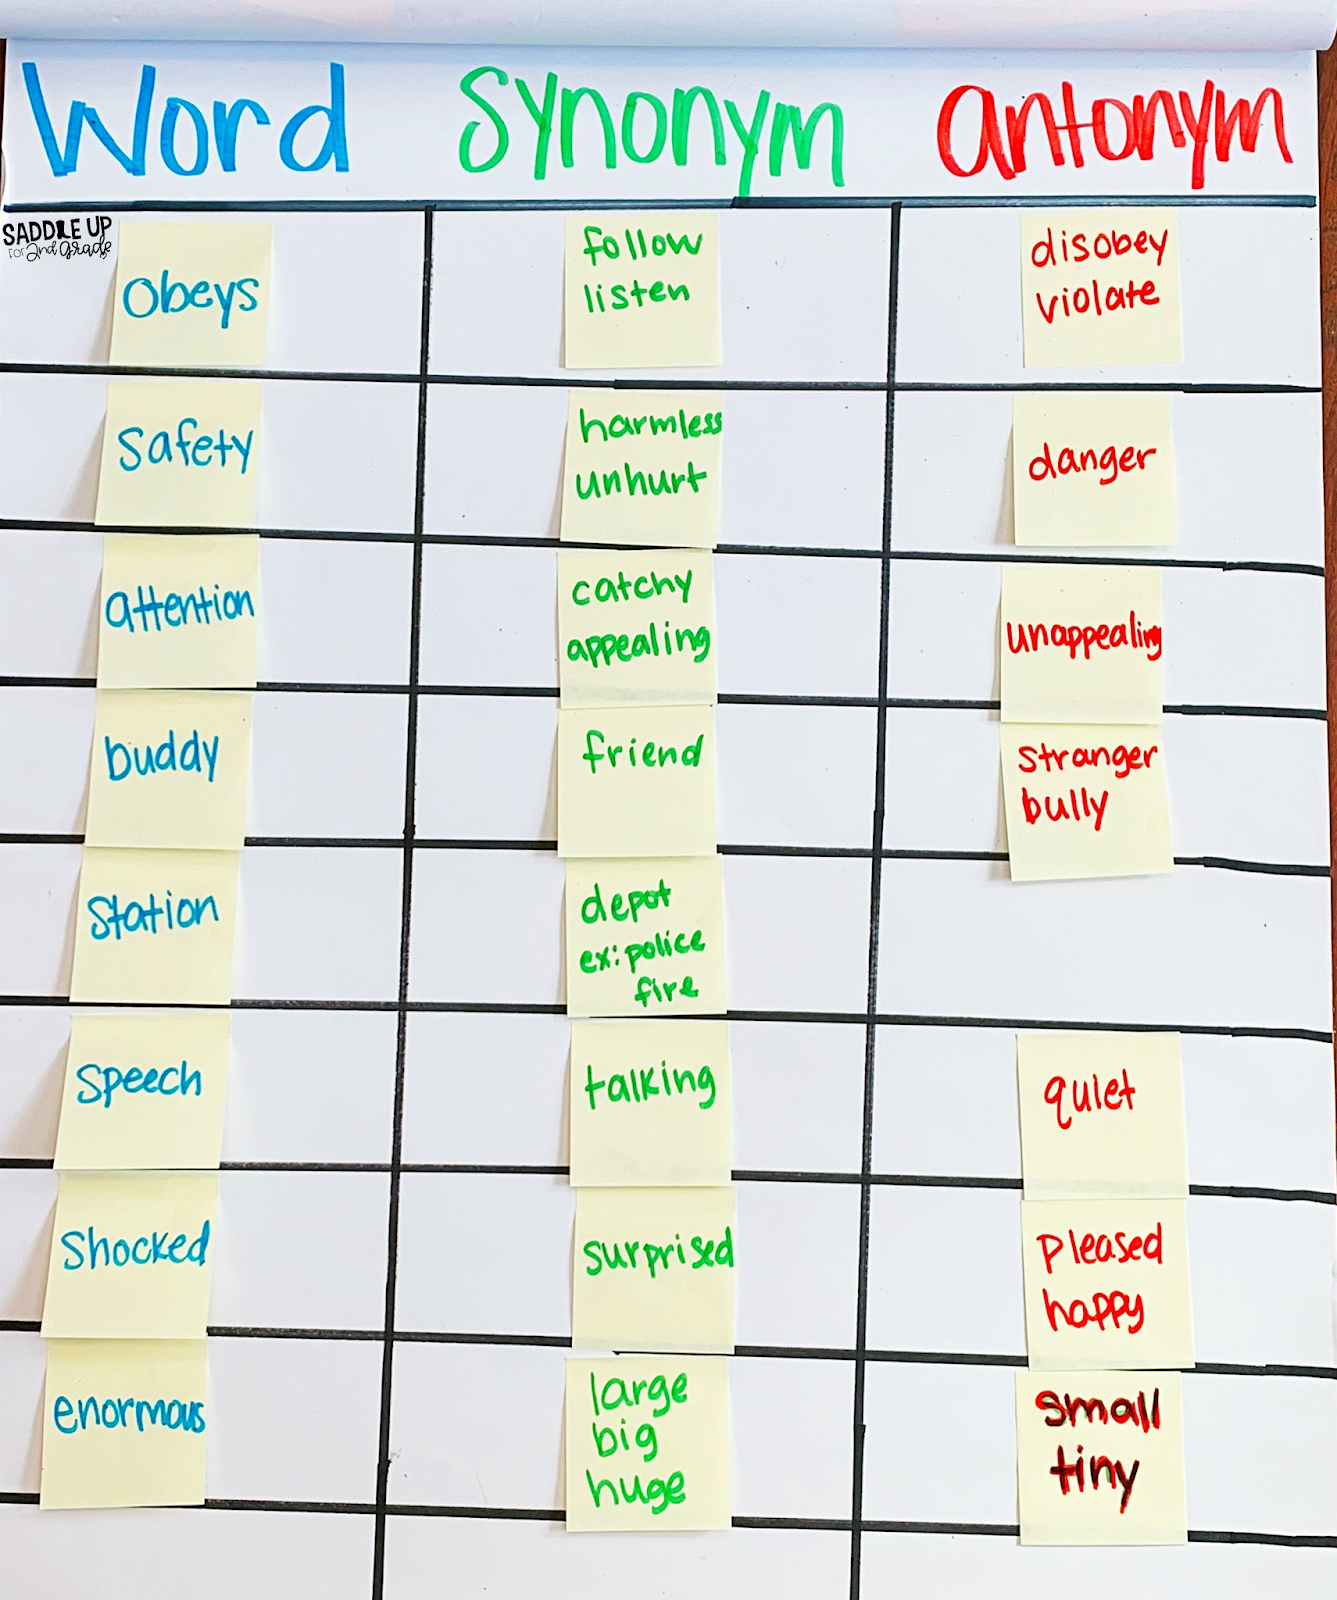 Word Synonym antonym
SADDLE UP
for 2nd Grade
obeys
follow
listen
disobey
violate
safety
harmless
unhurt
danger
attention
catchy
appealing
unappealing
buddy
friend
stranger
bully
Station
depot
ex: police
fire
speech
talking
quiet
Shocked
surprised
pleased
happy
enormous
large
big
huge
small
tiny